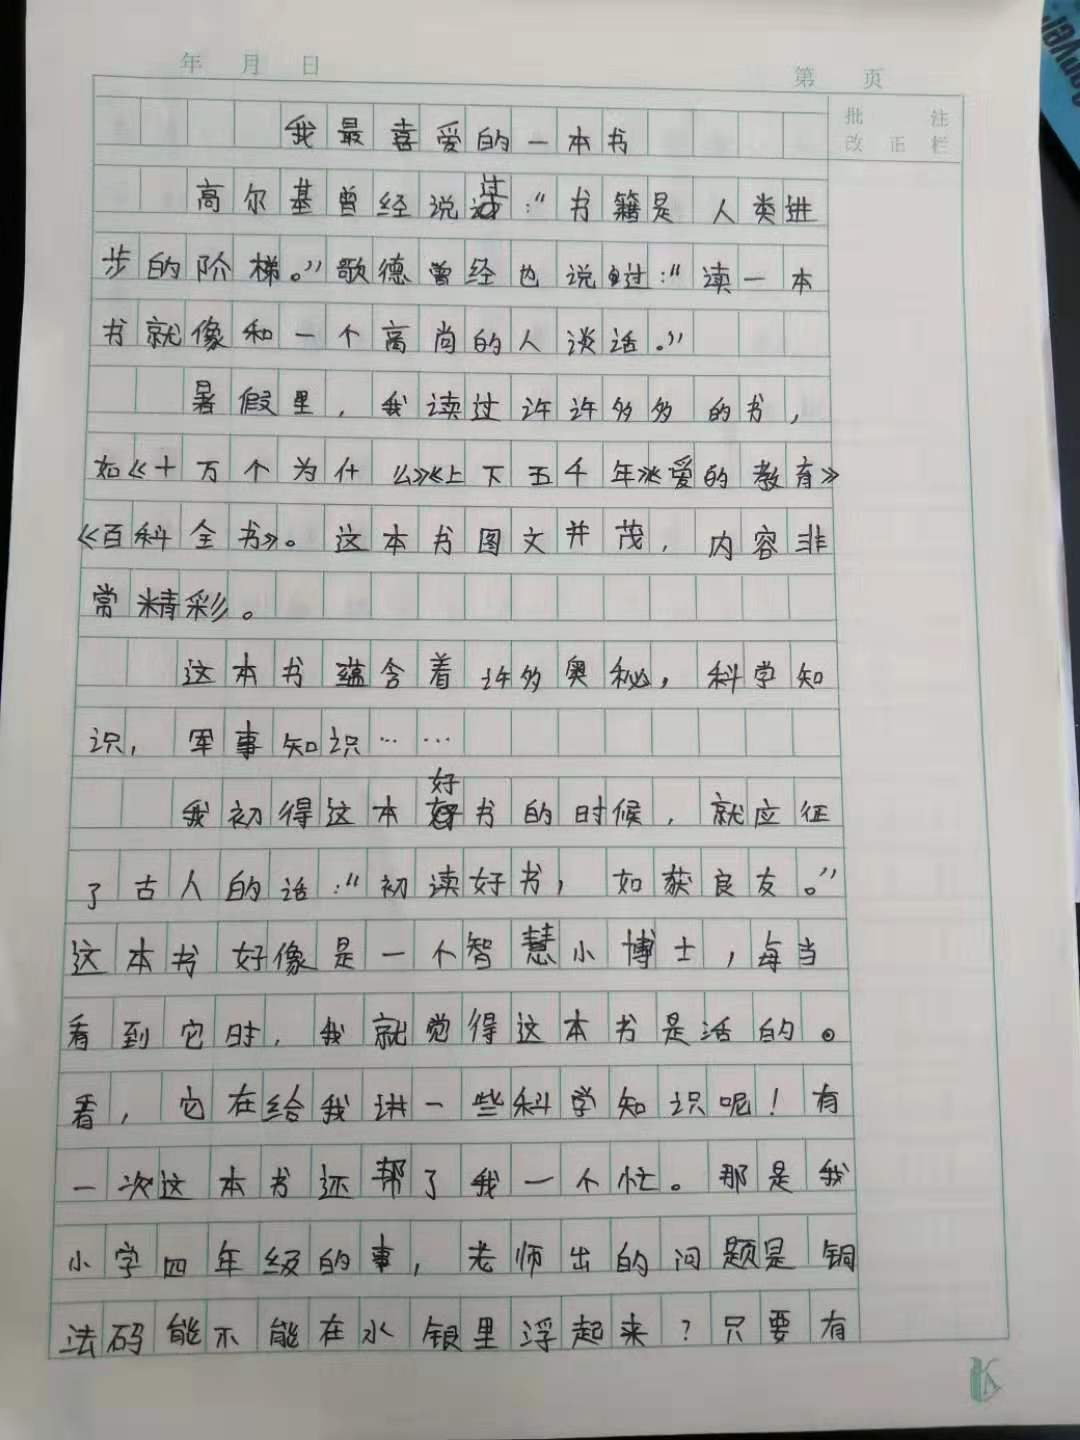 年 月 日
第 页
批 注
改 正 栏
我最喜爱的一本书
高尔基曾经说过:“书籍是人类进
步的阶梯。”歌德曾经也说过:“读一本
书就像和一个高尚的人谈话。”
暑假里,我读过许许多多的书,
如《十万个为什么》《上下五千年》《爱的教育》
《百科全书》。这本书图文并茂,内容非
常精彩。
这本书蕴含着许多奥秘,科学知
识,军事知识……
我初得这本好书的时候,就应征
了古人的话:“初读好书,如获良友。”
这本书好像是一个智慧小博士,每当
看到它时,我就觉得这本书是活的。
看,它在给我讲一些科学知识呢!有
一次这本书还帮了我一个忙。那是我
小学四年级的事,老师出的问题是铜
法码能不能在水银里浮起来?只要有